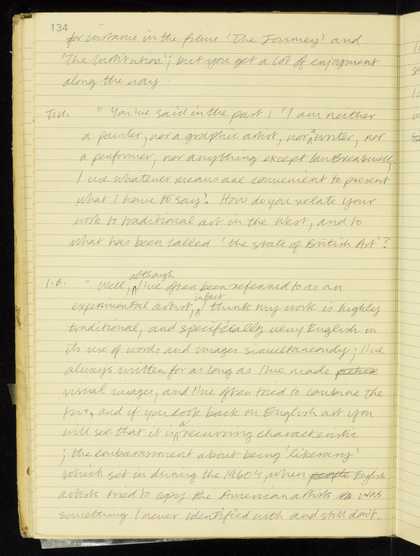 134
for instance in the films 'The Journey' and
'The Institution'; but you get a lot of enjoyment
along the way.
"You've said in the past: "I am neither
a painter, nor a graphic artist, nor a writer, nor
a performer, nor anything except Ian Breakwell,
I use whatever means are convenient to present
what I have to say". How do you relate your
work to traditional art in the West, and to
what has been called 'the state of British Art'?
I.B. "Well, although I've often been referred to as an
experimental artist, in fact I think my work is highly
traditional, and specifically very English in
its use of words and images simultaneously; I've
always written for as long as I've made
visual images, and I've often tried to combine the
two, and if you look back on English art you
will see that it is a recurring characteristic
; the embarrassment about being 'literary'
which set in during the 1960's, when people English
artists tried to copy the American artists was
something I never identified with and still don't.